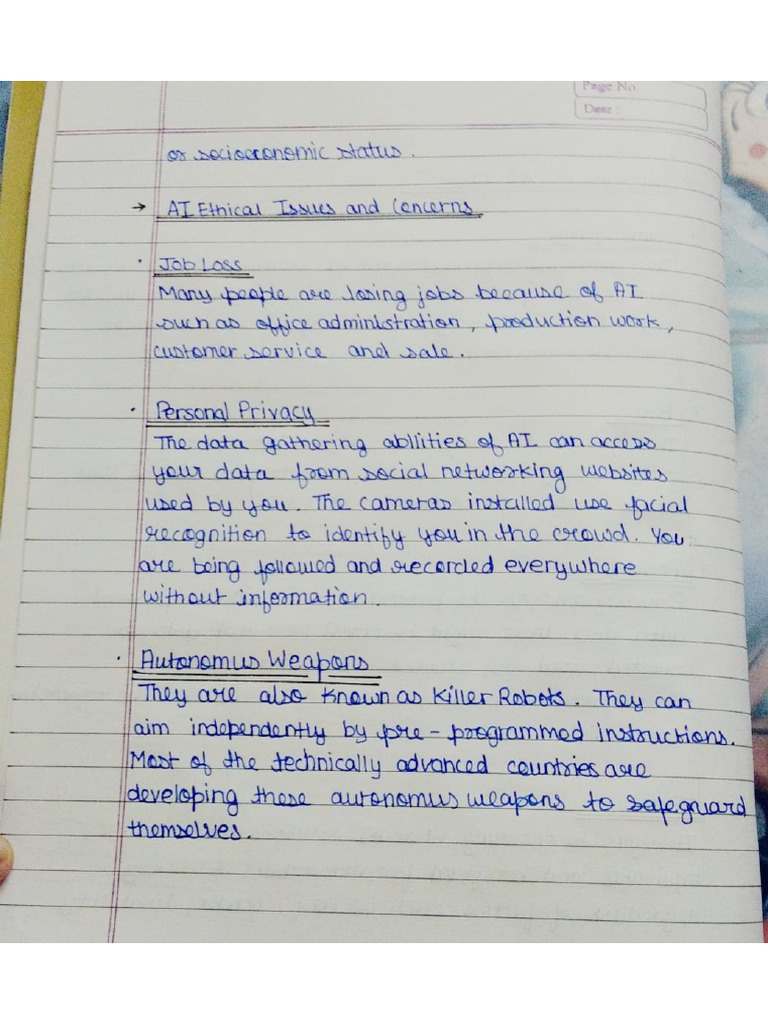 Page No.
Date :
or socioeconomic status.
→ AI Ethical Issues and Concerns
· Job Loss
Many people are losing jobs because of AI
such as office administration, production work,
customer service and sale.
· Personal Privacy
The data gathering abilities of AI can access
your data from social networking websites
used by you. The cameras installed use facial
recognition to identify you in the crowd. You
are being followed and recorded everywhere
without information.
· Autonomus Weapons
They are also known as Killer Robots. They can
aim independently by pre-programmed instructions.
Most of the technically advanced countries are
developing these autonomus weapons to safeguard
themselves.